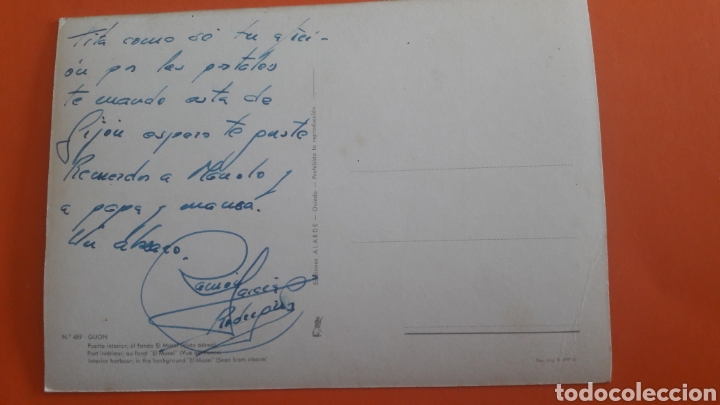 Tita como sé tu afici-
ón por las postales
te mando esta de
Gijón espero te guste
Recuerdos a Manolo y
a papa y mamá.
Un abrazo.
Ramón
García
Rodríguez
N.º 489 - GIJON
Puerto interior; al fondo El Musel (Vista aérea)
Port intérieur; au fond "El Musel" (Vue aérienne)
Interior harbour; in the background "El Musel" (Seen from above)
Ediciones ALARDE — Oviedo — Prohibida la reproducción
todocoleccion